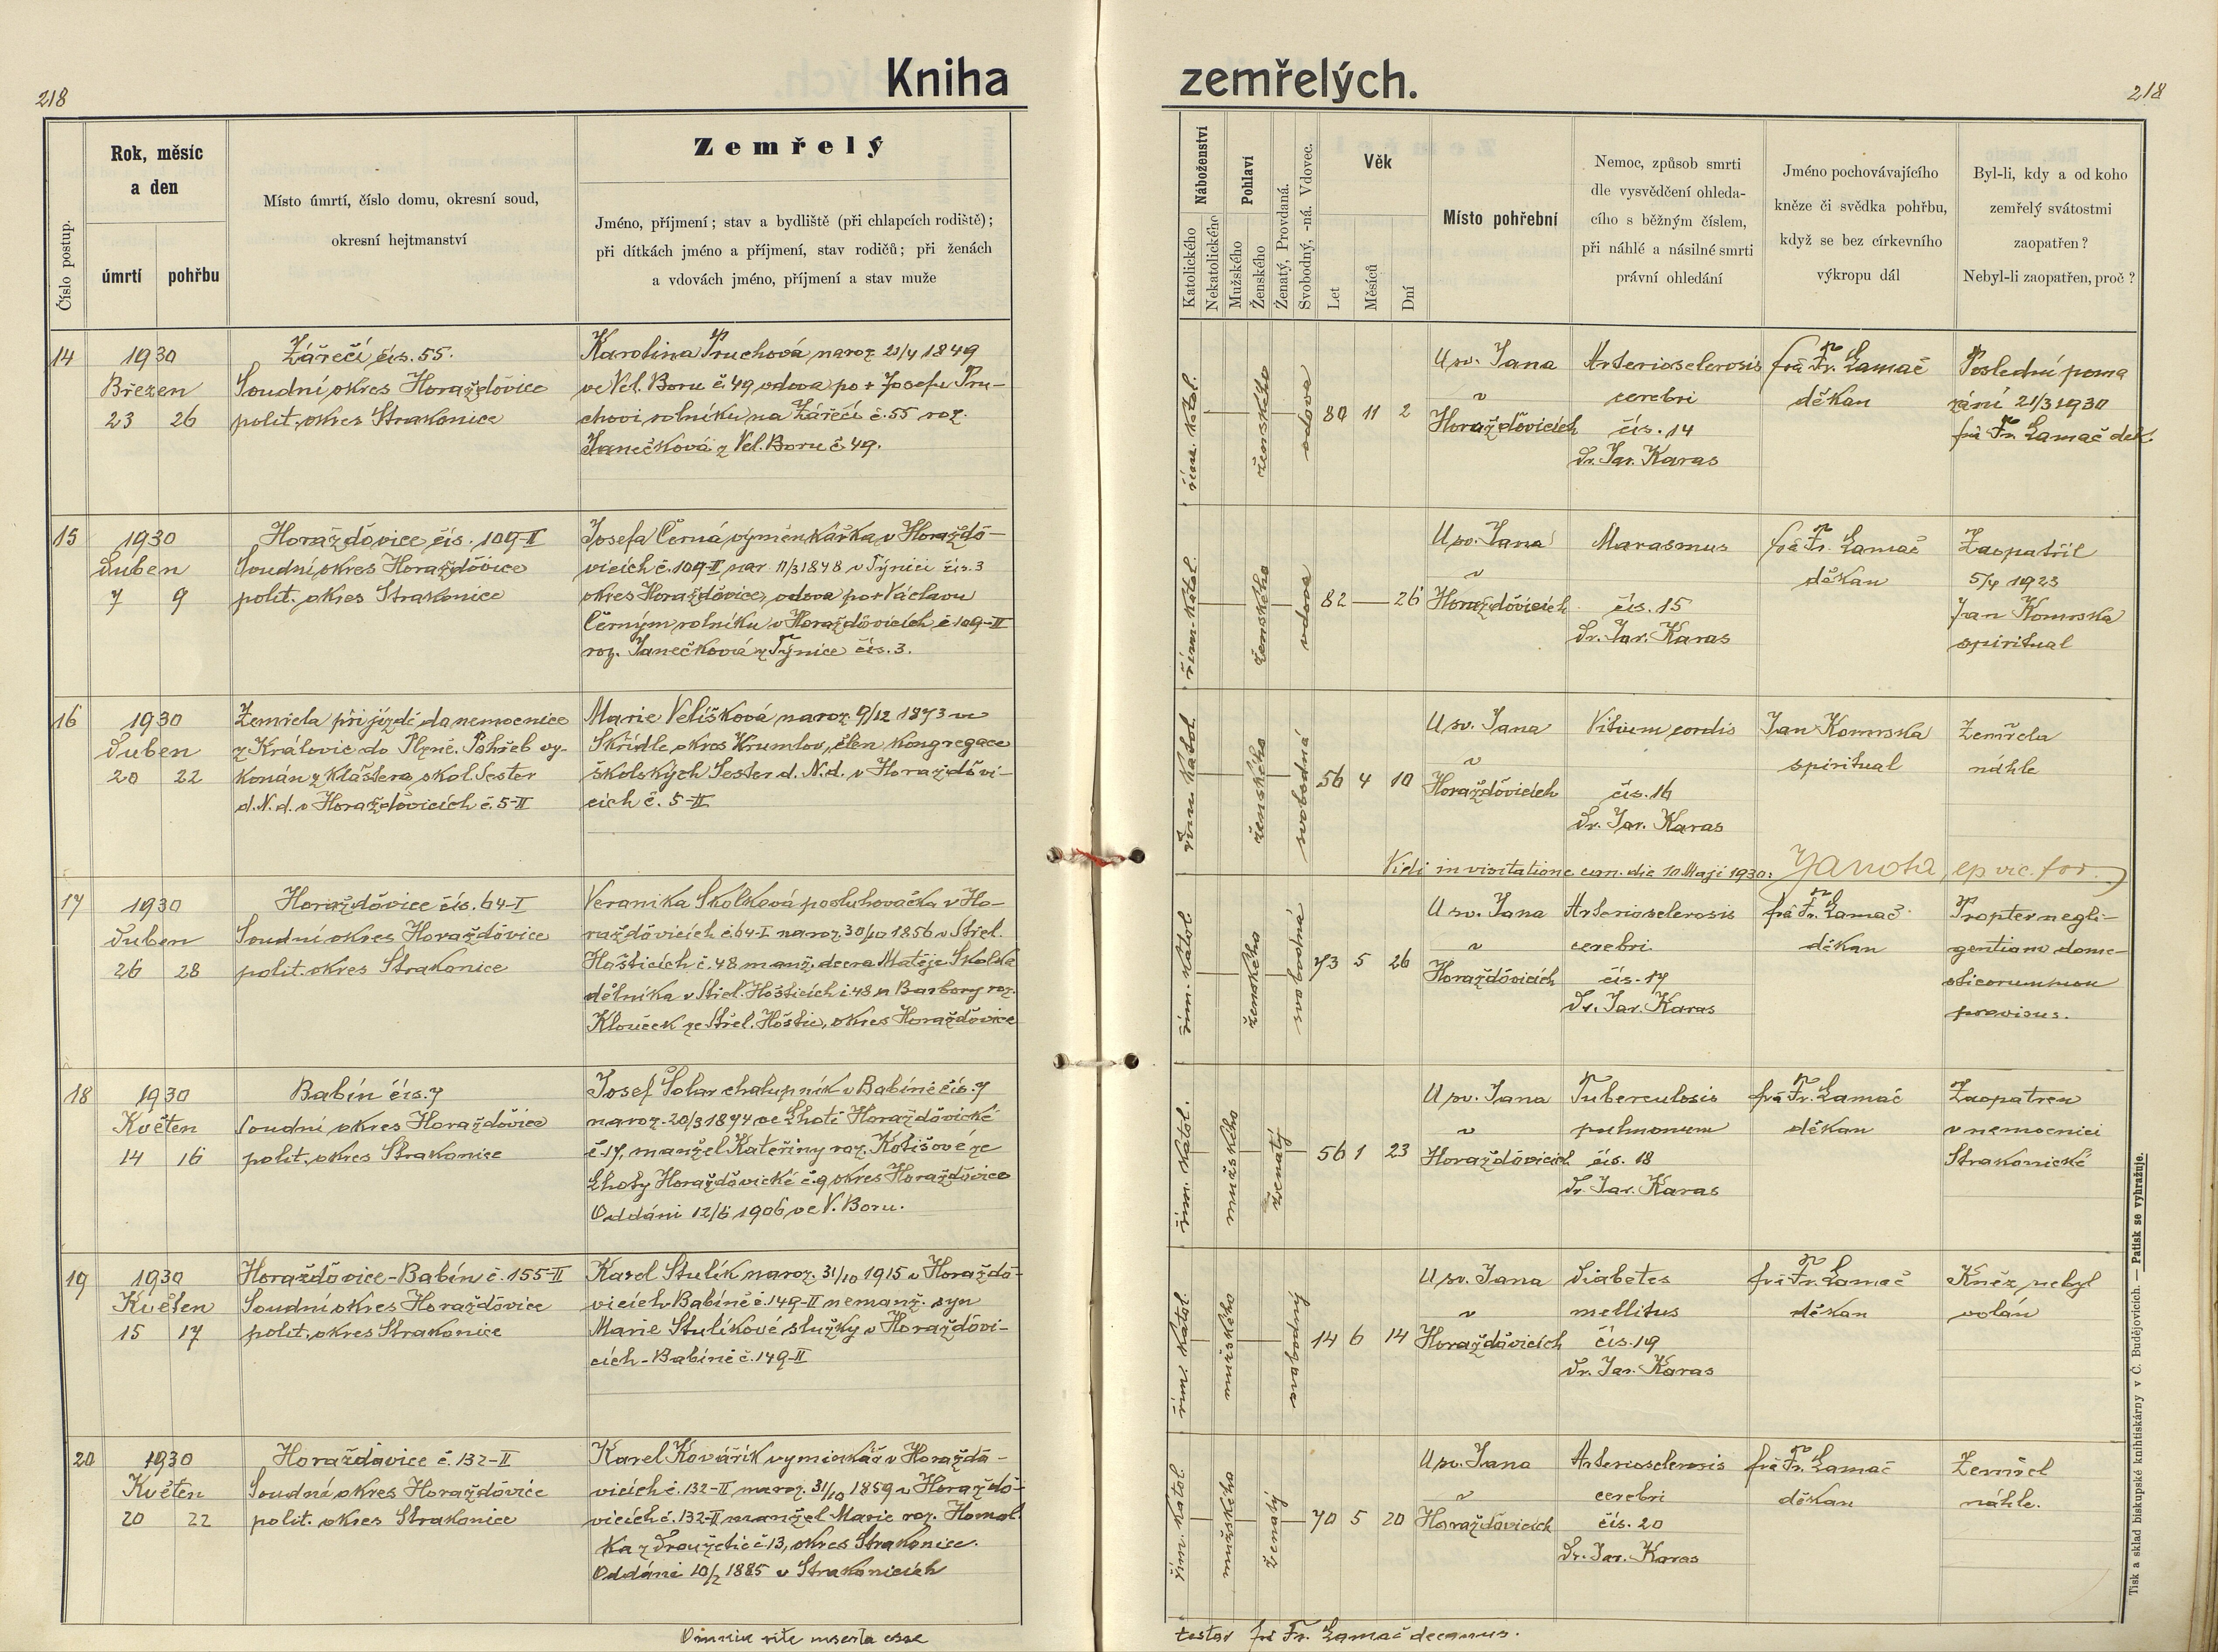 218
Kniha
zemřelých.
218
Číslo postup.
Rok, měsíc
a den
úmrtí
pohřbu
Místo úmrtí, číslo domu, okresní soud,
okresní hejtmanství
Zemřelý
Jméno, příjmení; stav a bydliště (při chlapcích rodiště);
při dítkách jméno a příjmení, stav rodičů; při ženách
a vdovách jméno, příjmení a stav muže
Náboženství
Katolického
Nekatolického
Pohlaví
Mužského
Ženského
Ženatý, Provdaná.
Svobodný, -ná. Vdovec.
Věk
Let
Měsíců
Dní
Místo pohřební
Nemoc, způsob smrti
dle vysvědčení ohleda-
cího s běžným číslem,
při náhlé a násilné smrti
právní ohledání
Jméno pochovávajícího
kněze či svědka pohřbu,
když se bez církevního
výkropu dál
Byl-li, kdy a od koho
zemřelý svátostmi
zaopatřen?
Nebyl-li zaopatřen, proč?
14
1930
Březen
23 26
Zářečí čís. 55.
Soudní okres Horažďovice
polit. okres Strakonice
Karolina Pruchová naroz. 21/4 1849
ve Vel. Boru č. 49 vdova po + Josefu Pru-
chovi rolníku na Zářečí č. 55 roz.
Janečková z Vel. Boru č. 49.
řím. katol.
ženského
vdova
80 11 2
U sv. Jana
v
Horažďovicích
Arteriosclerosis
cerebri
čís. 14
Dr. Jar. Karas
frá Fr. Lamač
děkan
Poslední poma
zání 21/3 1930
frá Fr. Lamač dek.
15
1930
Duben
7 9
Horažďovice čís. 109-II
Soudní okres Horažďovice
polit. okres Strakonice
Josefa Černá výměnkářka v Horaždo-
vicích č. 109-II nar. 11/3 1848 v Týnici čís. 3
okres Horažďovice, vdova po + Václavu
Černým rolníku v Horažďovicích č. 109-II
roz. Janečková z Týnice čís. 3.
řím. katol.
ženského
vdova
82 — 26
U sv. Jana
v
Horažďovicích
Marasmus
čís. 15
Dr. Jar. Karas
frá Fr. Lamač
děkan
Zaopatřil
5/4 1923
Jan Komrska
spiritual
16
1930
Duben
20 22
Zemřela při jízdě do nemocnice
z Královic do Plzně. Pohřeb vy-
konán z kláštera škol. Sester
d. N. d. v Horažďovicích č. 5-II
Marie Velíšková naroz. 9/12 1873 ve
Skřídle okres Krumlov, člen kongregace
školských Sester d. N. d. v Horažďovi-
cích č. 5-II
řím. katol.
ženského
svobodná
56 4 10
U sv. Jana
v
Horažďovicích
Vitium cordis
čís. 16
Dr. Jar. Karas
Jan Komrska
spiritual
Zemřela
náhle
Vidi in visitatione can. die 10 Maji 1930: Janota, ep. vic. for.
17
1930
Duben
26 28
Horažďovice čís. 64-I
Soudní okres Horažďovice
polit. okres Strakonice
Veronika Skolková posluhovačka v Ho-
ražďovicích č. 64-I naroz. 30/10 1856 v Střel.
Hošticích č. 48 manž. dcera Matěje Skolka
dělníka v Střel. Hošticích č. 48 a Barbory roz.
Klouček ze Střel. Hoštic, okres Horažďovice
řím. katol.
ženského
svobodná
73 5 26
U sv. Jana
v
Horažďovicích
Arteriosclerosis
cerebri
čís. 17
Dr. Jar. Karas
frá Fr. Lamač
děkan
Propter negli-
gentiam dome-
sticorum non
provisus.
18
1930
Květen
14 16
Babín čís. 7
Soudní okres Horažďovice
polit. okres Strakonice
Josef Šolar chalupník v Babíně čís. 7
naroz. 20/3 1874 ve Lhotě Horažďovické
č. 17, manžel Kateřiny roz. Kotišové ze
Lhoty Horažďovické č. 9 okres Horažďovice
Oddáni 12/6 1906 ve V. Boru.
řím. katol.
mužského
ženatý
56 1 23
U sv. Jana
v
Horažďovicích
Tuberculosis
pulmonum
čís. 18
Dr. Jar. Karas
frá Fr. Lamač
děkan
Zaopatřen
v nemocnici
Strakonické
19
1930
Květen
15 17
Horažďovice-Babín č. 155-II
Soudní okres Horažďovice
polit. okres Strakonice
Karel Stulík naroz. 31/10 1915 v Horaždo-
vicích-Babíně č. 149-II nemanž. syn
Marie Stulíkové služky v Horažďovi-
cích-Babíně č. 149-II
řím. katol.
mužského
svobodný
14 6 14
U sv. Jana
v
Horažďovicích
Diabetes
mellitus
čís. 19
Dr. Jar. Karas
frá Fr. Lamač
děkan
Kněz nebyl
volán
20
1930
Květen
20 22
Horažďovice č. 132-II
Soudní okres Horažďovice
polit. okres Strakonice
Karel Kovářík výminkář v Horaždo-
vicích č. 132-II naroz. 31/10 1859 v Horaždo-
vicích č. 132-II manžel Marie roz. Homol
ka z Droužetic č. 13, okres Strakonice.
Oddáni 10/2 1885 v Strakonicích
řím. katol.
mužského
ženatý
70 5 20
U sv. Jana
v
Horažďovicích
Arteriosclerosis
cerebri
čís. 20
Dr. Jar. Karas
frá Fr. Lamač
děkan
Zemřel
náhle.
Omnia rite inserta esse
testor frá Fr. Lamač decanus.
Tisk a sklad biskupské knihtiskárny v Č. Budějovicích. — Patisk se vyhražuje.